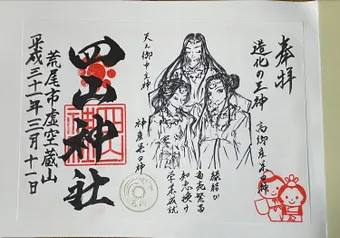 奉拝
造化の三神
高御産巣日神
天之御中主神
神産巣日神
縁結び
商売繁昌
知恵授け
学業成就
四山神社
荒尾市虚空蔵山
平成三十一年三月十一日